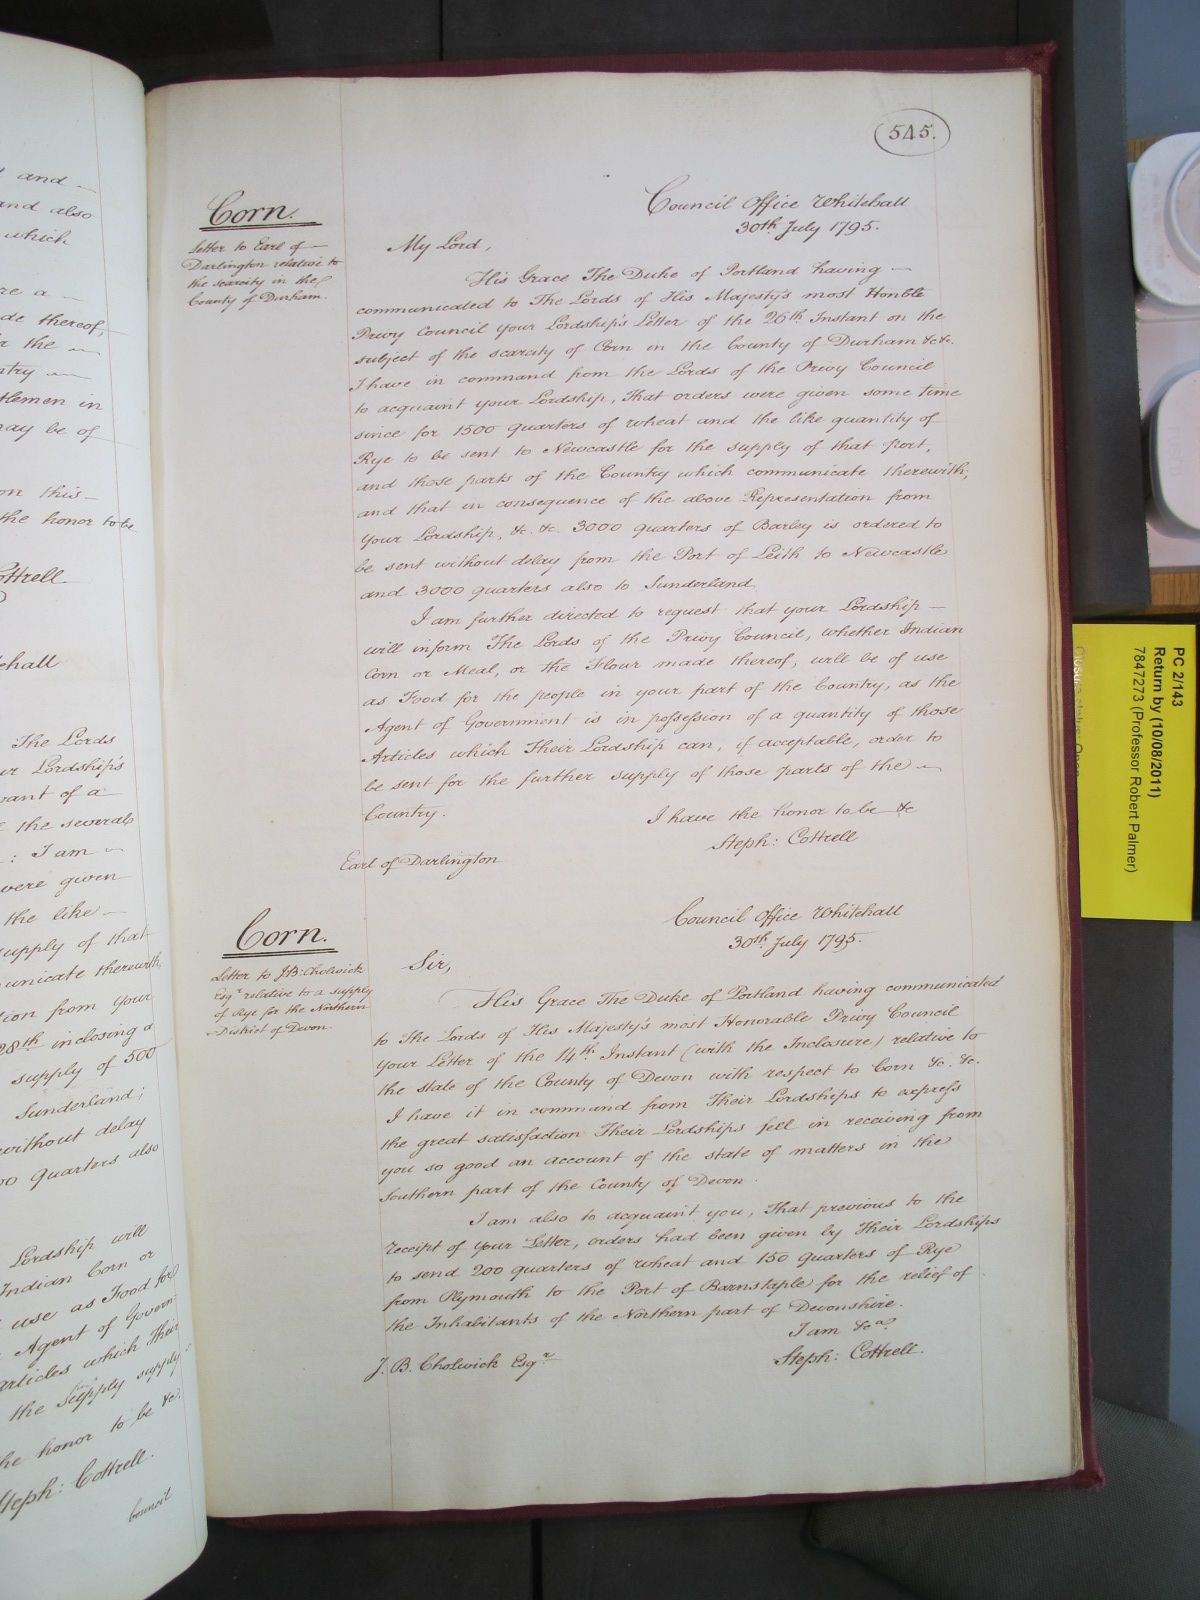 545.
Corn.
Letter to Earl of
Darlington relative to
the scarcity in the
County of Durham.
Council Office Whitehall
30th July 1795.
My Lord,
His Grace The Duke of Portland having
communicated to The Lords of His Majesty's most Honble
Privy Council your Lordship's Letter of the 26th Instant on the
subject of the scarcity of Corn in the County of Durham &c &c.
I have in command from the Lords of the Privy Council
to acquaint your Lordship, That orders were given some time
since for 1500 quarters of wheat and the like quantity of
Rye to be sent to Newcastle for the supply of that port,
and those parts of the Country which communicate therewith;
and that in consequence of the above Representation from
your Lordship, &c. &c. 3000 quarters of Barley is ordered to
be sent without delay from the Port of Leith to Newcastle
and 3000 quarters also to Sunderland
I am further directed to request that your Lordship
will inform The Lords of the Privy Council, whether Indian
Corn or Meal, or the Flour made thereof, will be of use
as Food for the people in your part of the Country, as the
Agent of Government is in possession of a quantity of those
Articles which Their Lordship can, if acceptable, order to
be sent for the further supply of those parts of the
Country.
I have the honor to be &c
Steph: Cottrell
Earl of Darlington
Corn.
Letter to J.B: Cholwick
Esqr. relative to a supply
of Rye for the Northern
District of Devon.
Council Office Whitehall
30th July 1795.
Sir,
His Grace The Duke of Portland having communicated
to the Lords of His Majesty's most Honorable Privy Council
your Letter of the 14th Instant (with the Inclosure) relative to
the state of the County of Devon with respect to Corn &c. &c.
I have it in command from Their Lordships to express
the great satisfaction Their Lordships fell in receiving from
you so good an account of the state of matters in the
Southern part of the County of Devon.
I am also to acquaint you, That previous to the
receipt of your Letter, orders had been given by Their Lordships
to send 200 quarters of wheat and 150 quarters of Rye
from Plymouth to the Port of Barnstaple for the relief of
the Inhabitants of the Northern part of Devonshire.
I am &ca
Steph: Cottrell
J. B. Cholwick Esqr
and
and also
which
de thereof,
the
tlemen in
may be of
on this
the honor to be
Cottrell
The Lords
Lordship's
want of a
the several
: I am
were given
the like
supply of that
unicate therewith,
tion from your
28th inclosing a
supply of 500
Sunderland;
without delay
Quarters also
Lordship will
Indian Corn or
use as Food for
Agent of Govern
articles which Their
the supply supply
the honor to be &c.
Steph: Cottrell.
Council
PC 2/143
Return by (10/08/2011)
7847273 (Professor Robert Palmer)
Closure status: Open